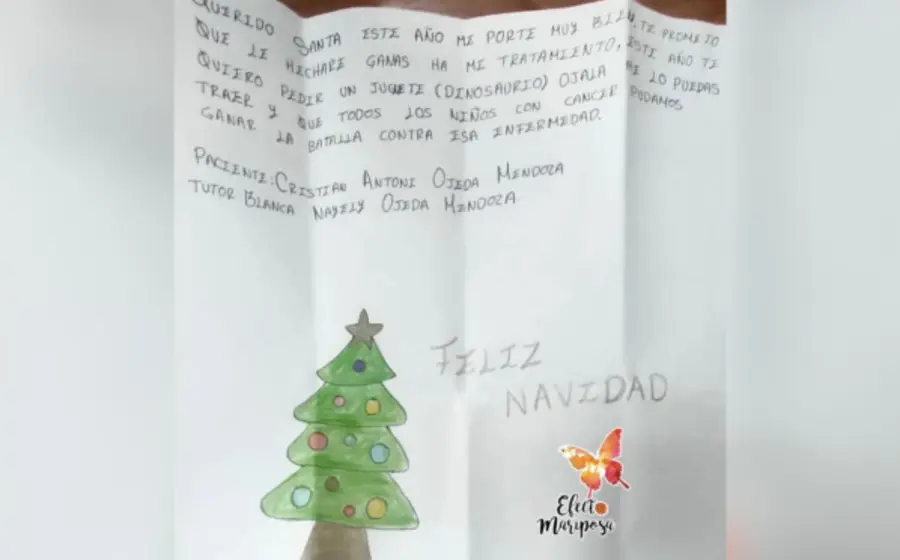 QUERIDO SANTA ESTE AÑO ME PORTE MUY BIEN, TE PROMETO
QUE LE HECHARE GANAS HA MI TRATAMIENTO, ESTE AÑO TE
QUIERO PEDIR UN JUGETE (DINOSAURIO) OJALA ME LO PUEDAS
TRAER Y QUE TODOS LOS NIÑOS CON CANCER PODAMOS
GANAR LA BATALLA CONTRA ESA ENFERMEDAD.
PACIENTE: CRISTIAN ANTONI OJEDA MENDOZA
TUTOR BLANCA NAYELY OJEDA MENDOZA
FELIZ
NAVIDAD
Efecto
Mariposa